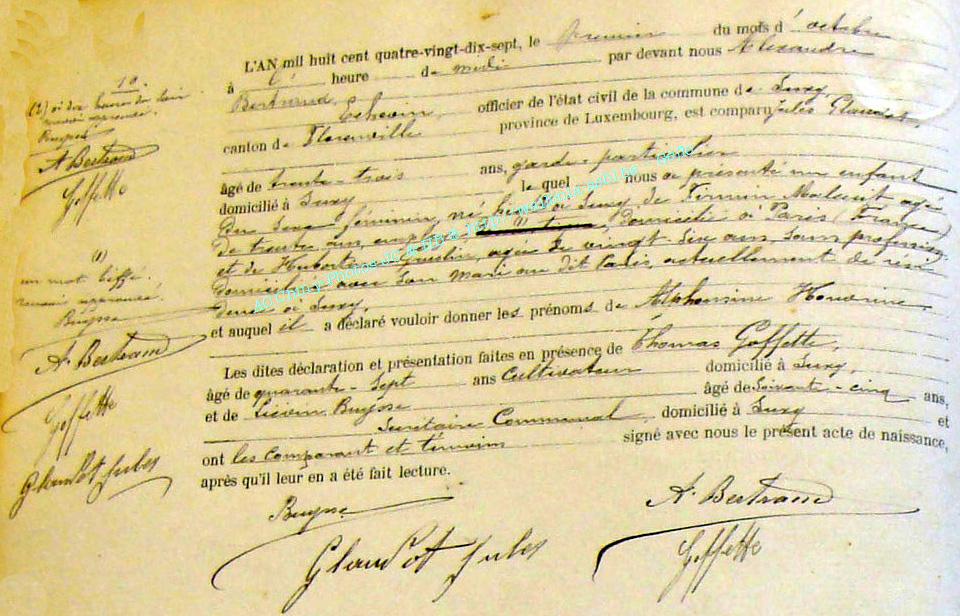 L'AN mil huit cent quatre-vingt-dix-sept, le premier du mois d'octobre
à heure de midi par devant nous Alexandre
Bertrand, Echevin, officier de l'état civil de la commune de Suxy,
canton de Florenville province de Luxembourg, est comparu Jules Glaudot,
âgé de trente-trois ans, garde-particulier
domicilié à Suxy le quel nous a présenté un enfant
du sexe féminin, né à Suxy, de Firmin agé
de trente ans, domicilié à Paris (France)
et de Hubertine agée de vingt-six ans, sans profession,
domiciliée avec son mari au dit Paris, actuellement de rési
dence à Suxy,
et auquel il a déclaré vouloir donner les prénoms de Alphonsine Honorine
Les dites déclaration et présentation faites en présence de Thomas Goffette,
âgé de quarante-sept ans Cultivateur domicilié à Suxy,
et de Buysse âgé de soixante-cinq ans,
Secrétaire Communal, domicilié à Suxy et
ont les comparant et témoins signé avec nous le présent acte de naissance,
après qu'il leur en a été fait lecture.
Buysse
A. Bertrand
Glaudot Jules
Goffette
10.
A. Bertrand
Goffette
(1)
un mot biffé
Buysse
A. Bertrand
Goffette
Glaudot Jules